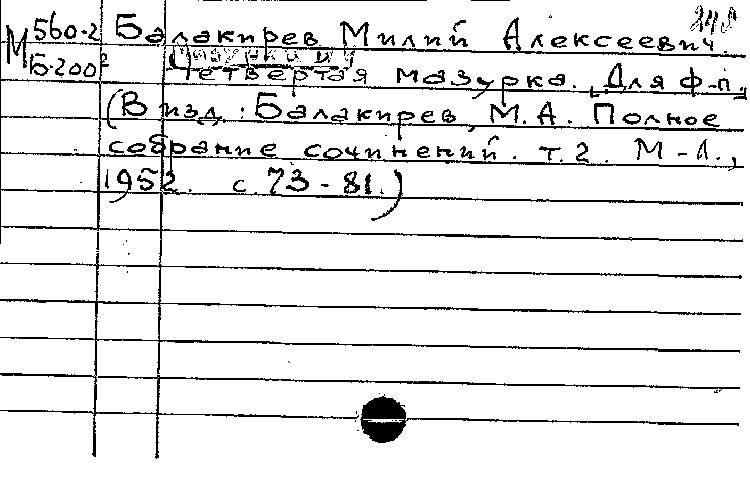 248
М 560-2 Балакирев Милий Алексеевич.
Б-200² [Мазурка
Четвертая мазурка. [Для ф-п.]
(В изд.: Балакирев, М.А. Полное
собрание сочинений. т.2. М-Л.,
1952. с.73-81.)